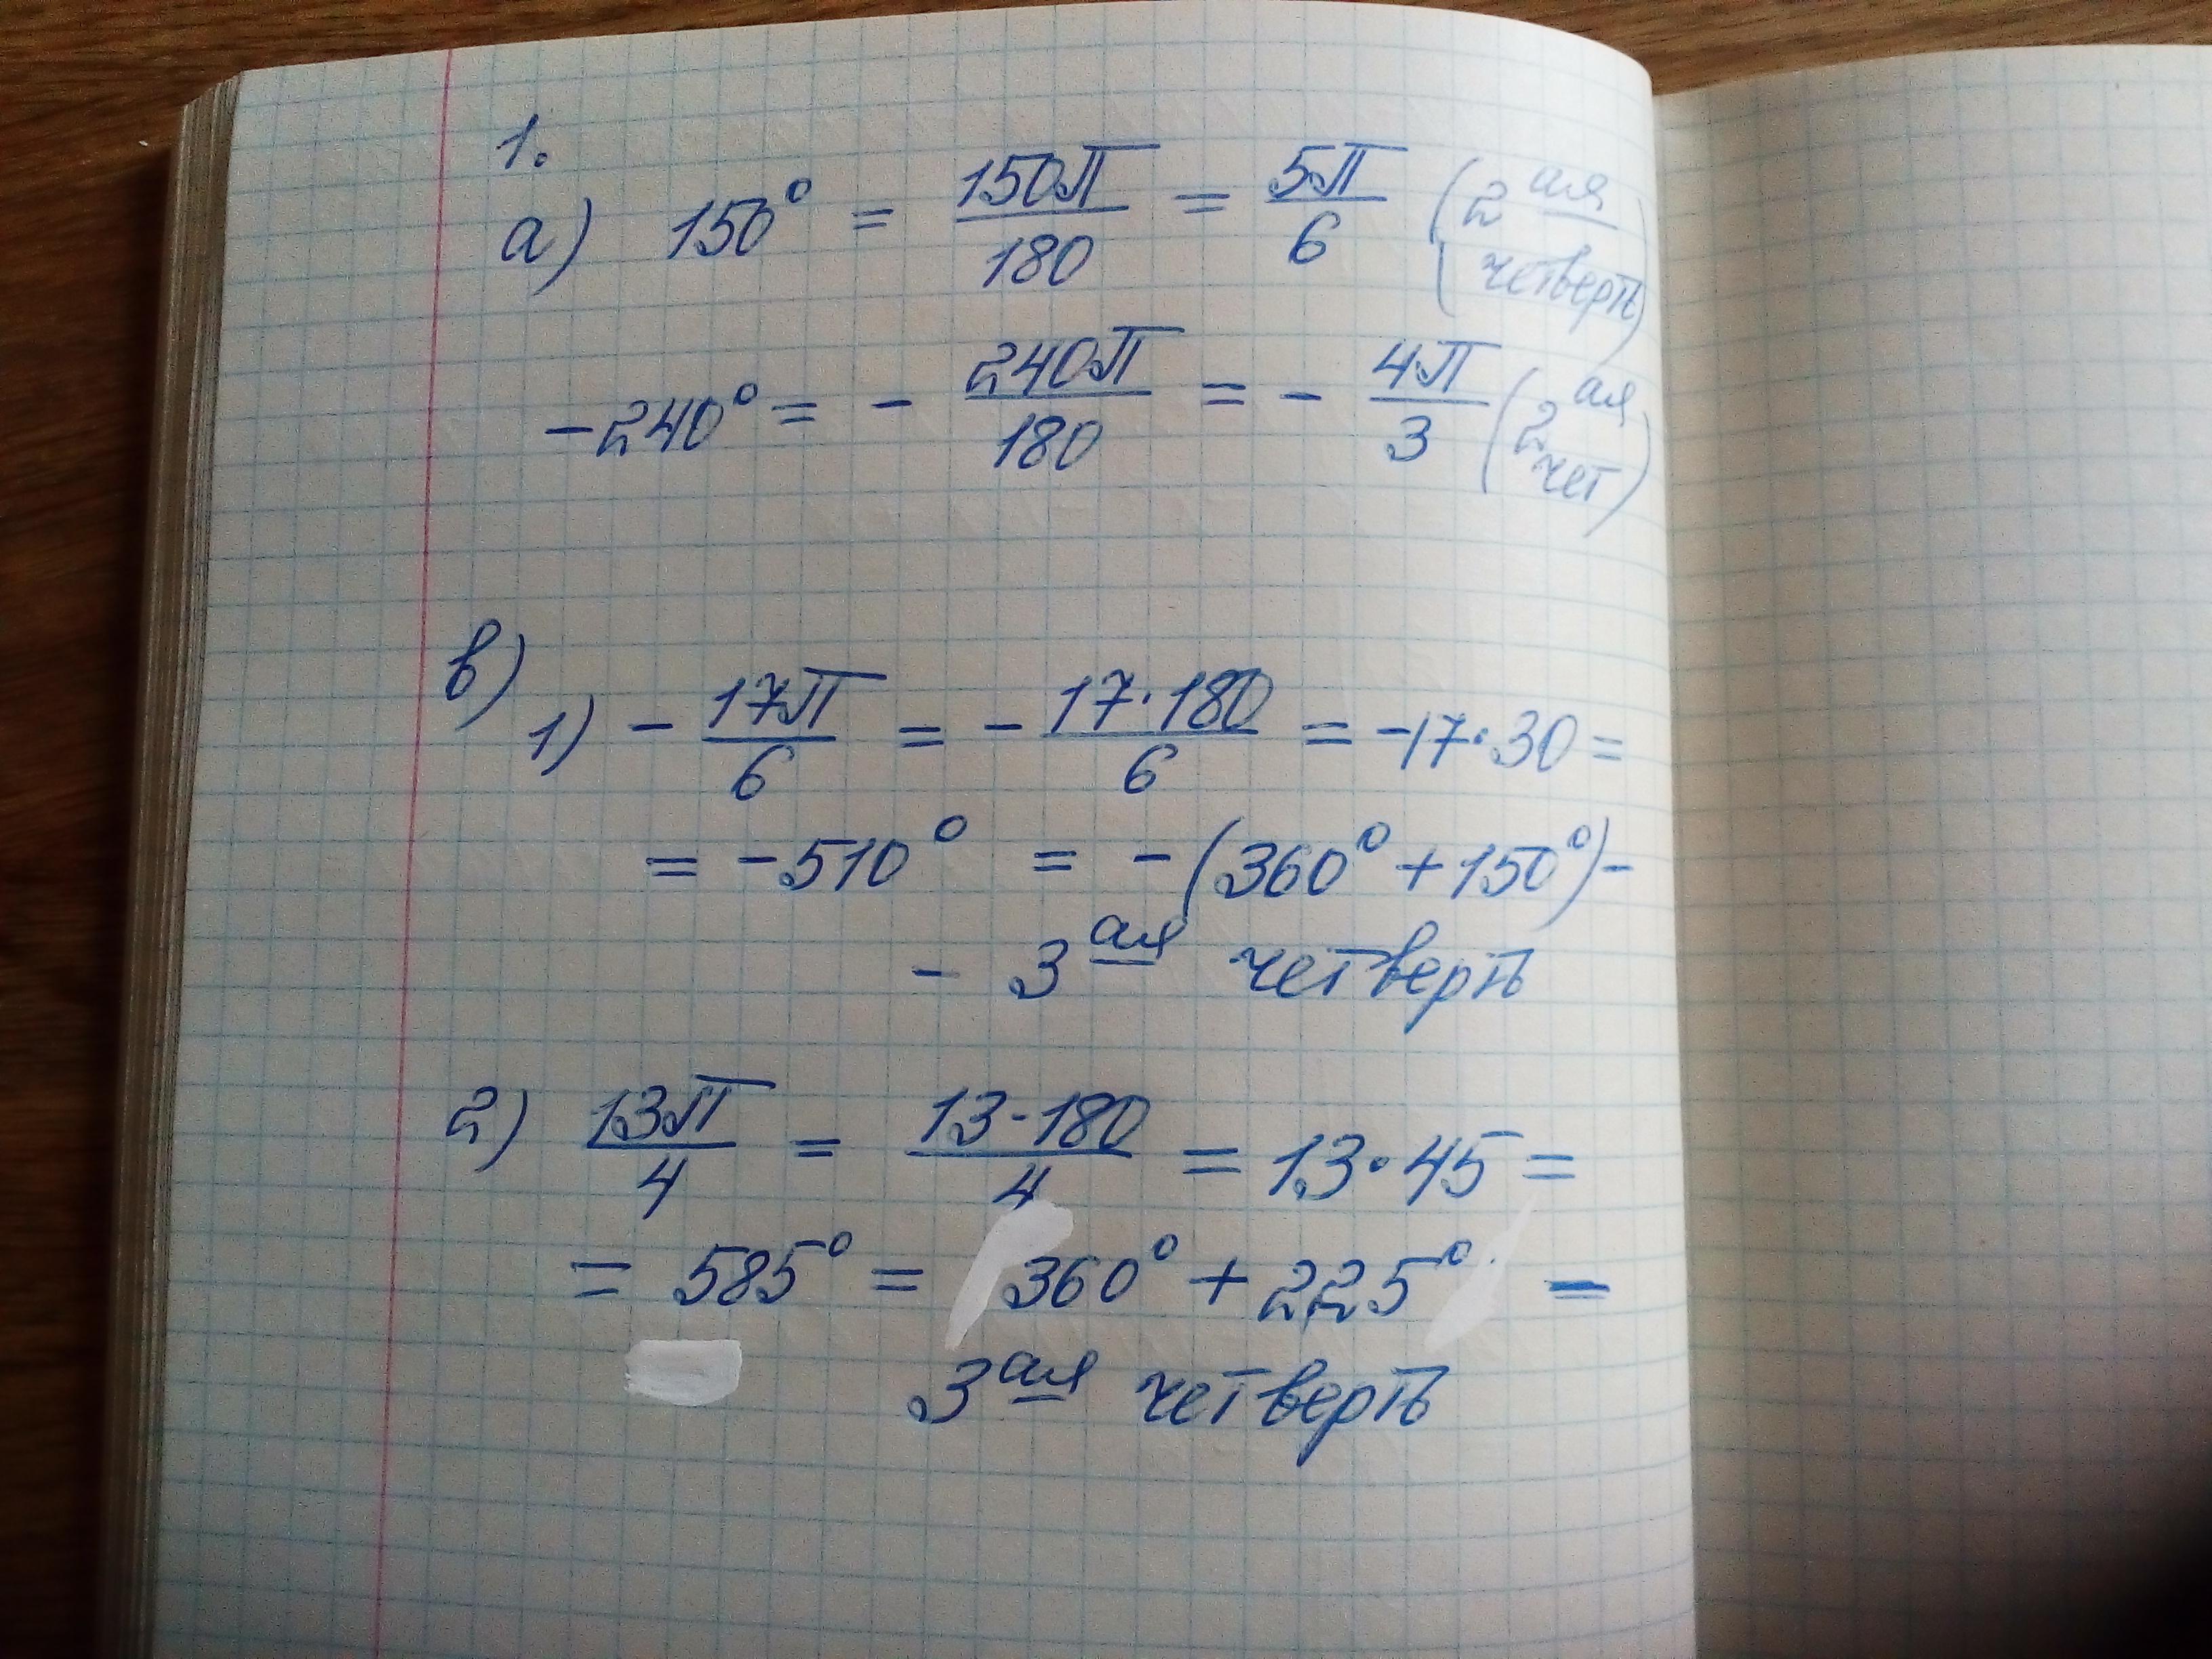 1.
а) 150° = 150π/180 = 5π/6 (2ая четверть)
-240° = - 240π/180 = - 4π/3 (2ая чет)
в)
1) - 17π/6 = - 17·180/6 = -17·30 =
= -510° = -(360° + 150°) -
- 3ая четверть
2) 13π/4 = 13·180/4 = 13·45 =
= 585° = 360° + 225° -
3ая четверть